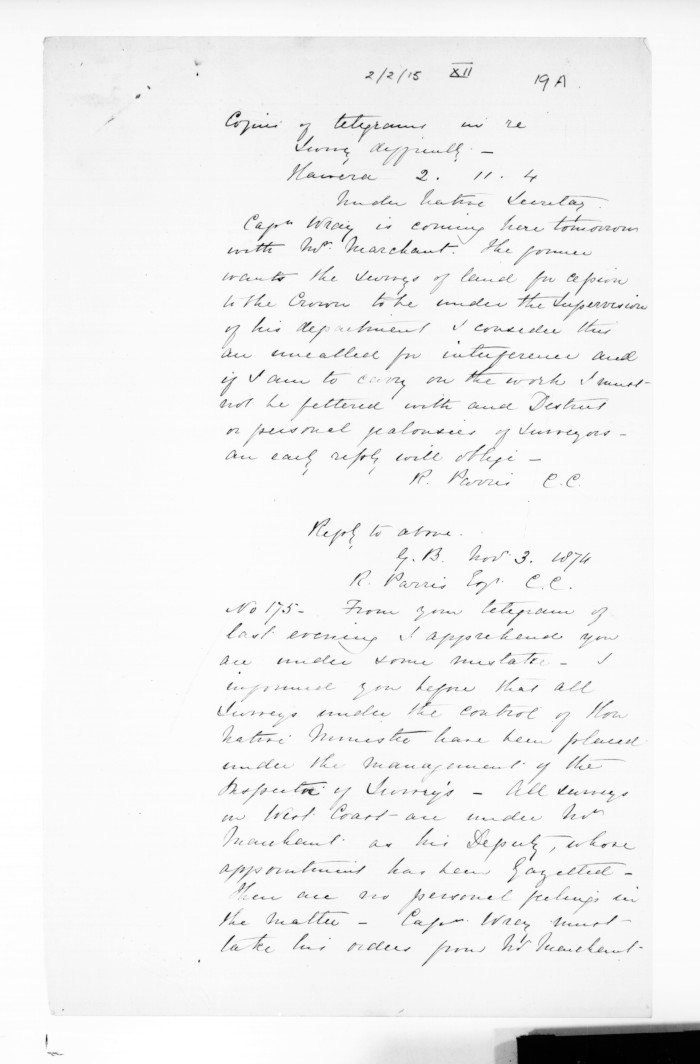 2/2/15 XII 19A
Copies of telegrams in re
Survey difficulty. —
Hawera 2. 11. 4
Under Native Secretary.
Capn Wray is coming here tomorrow
with Mr. Marchant. The former
wants the surveys of land for cession
to the Crown to be under the supervision
of his department I consider this
an uncalled for interference and
if I am to carry on the work I must
not be fettered with and District
or personal jealousies of surveyors —
an early reply will oblige —
R. Parris C.C.
Reply to above.
G.B. Nov 3. 1874
R. Parris Esqr. C.C.
No 175 — From your telegram of
last evening I apprehend you
are under some mistake — I
informed you before that all
Surveys under the control of Hon
Native Minister have been placed
under the management of the
Inspector of Surveys — All surveys
on West Coast are under Mr
Marchant as his Deputy, whose
appointment has been Gazetted —
There are no personal feelings in
the matter — Capn. Wray must
take his orders from Mr Marchant